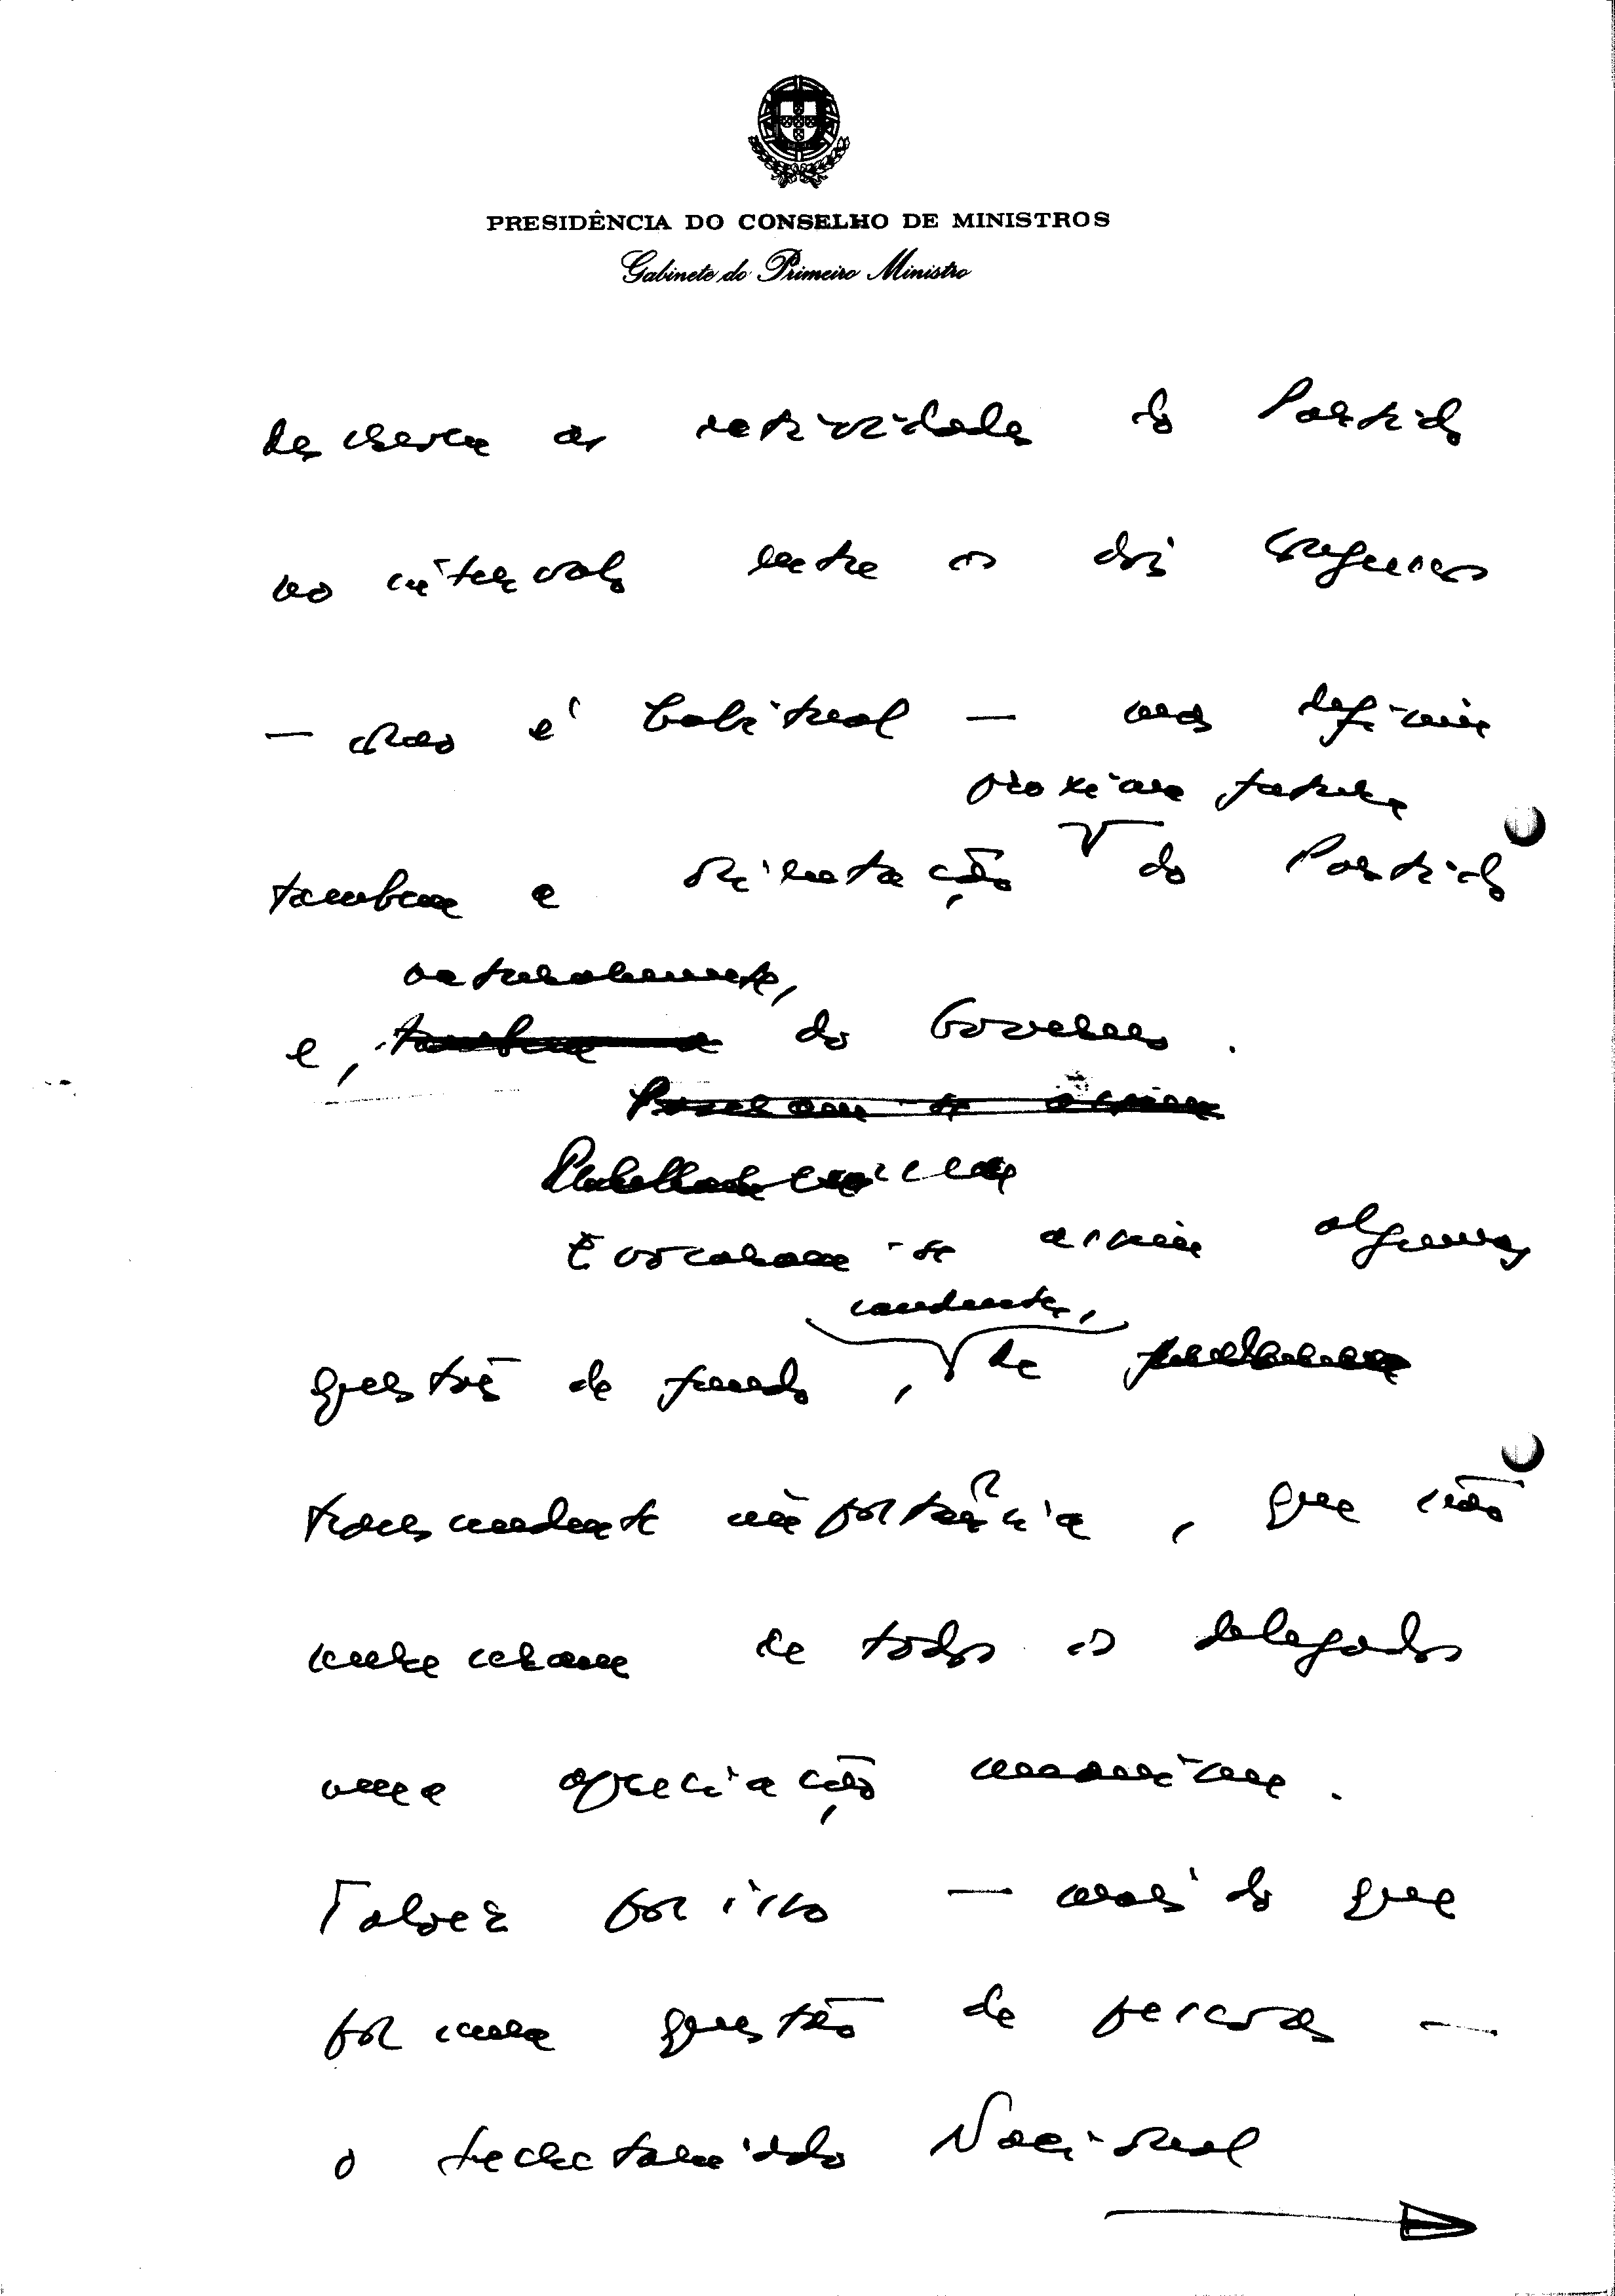 PRESIDÊNCIA DO CONSELHO DE MINISTROS
Gabinete do Primeiro Ministro
as actividades do Partido
no intervalo entre os dois Congressos
— como é habitual — mas definir
próxima futura
também a orientação do Partido
naturalmente,
e, também a do Governo.
Evocaram-se assim algumas
candentes,
questões de fundo, de
transcendente importância, que não
mereceram de todos os delegados
uma apreciação unânime.
Talvez por isso — mais do que
por uma questão de pessoas —
o Secretariado Nacional